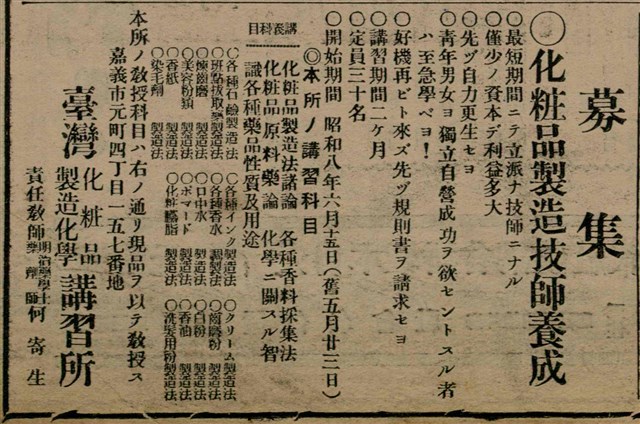 募集
◯化粧品製造技師養成
◯最短期間ニテ立派ナ技師ニナル
◯僅少ノ資本デ利益多大
◯先ヅ自力更生セヨ
◯青年男女ヨ獨立自營成功ヲ欲セントスル者
ハ至急學ベヨ!
◯好機再ビト來ズ先ヅ規則書ヲ請求セヨ
◯講習期間二ケ月
◯定員三十名
◯開始期間 昭和八年六月十五日(舊五月廿三日)
◎本所ノ講習科目
講義科目
化粧品製造法諸論 各種香料採集法
化粧品原料藥論 化學ニ關スル智
識各種藥品性質及用途
◯各種石鹼製造法 ◯各種インク製造法 ◯クリーム製造法
◯班點拔取藥製造法 ◯各種香水調製法 ◯齒磨粉製造法
◯煉齒磨製造法 ◯口中水製造法 ◯白粉製造法
◯美容粉類製造法 ◯ポマード製造法 ◯香油製造法
◯香紙製造法 ◯化粧臙脂製造法 ◯洗髮用粉製造法
◯染毛劑製造法
本所ノ敎授科目ハ右ノ通リ現品ヲ以テ敎授ス
嘉義市元町四丁目一五七番地
臺灣化粧品製造化學講習所
責任敎師明治藥學士藥劑師何寄生